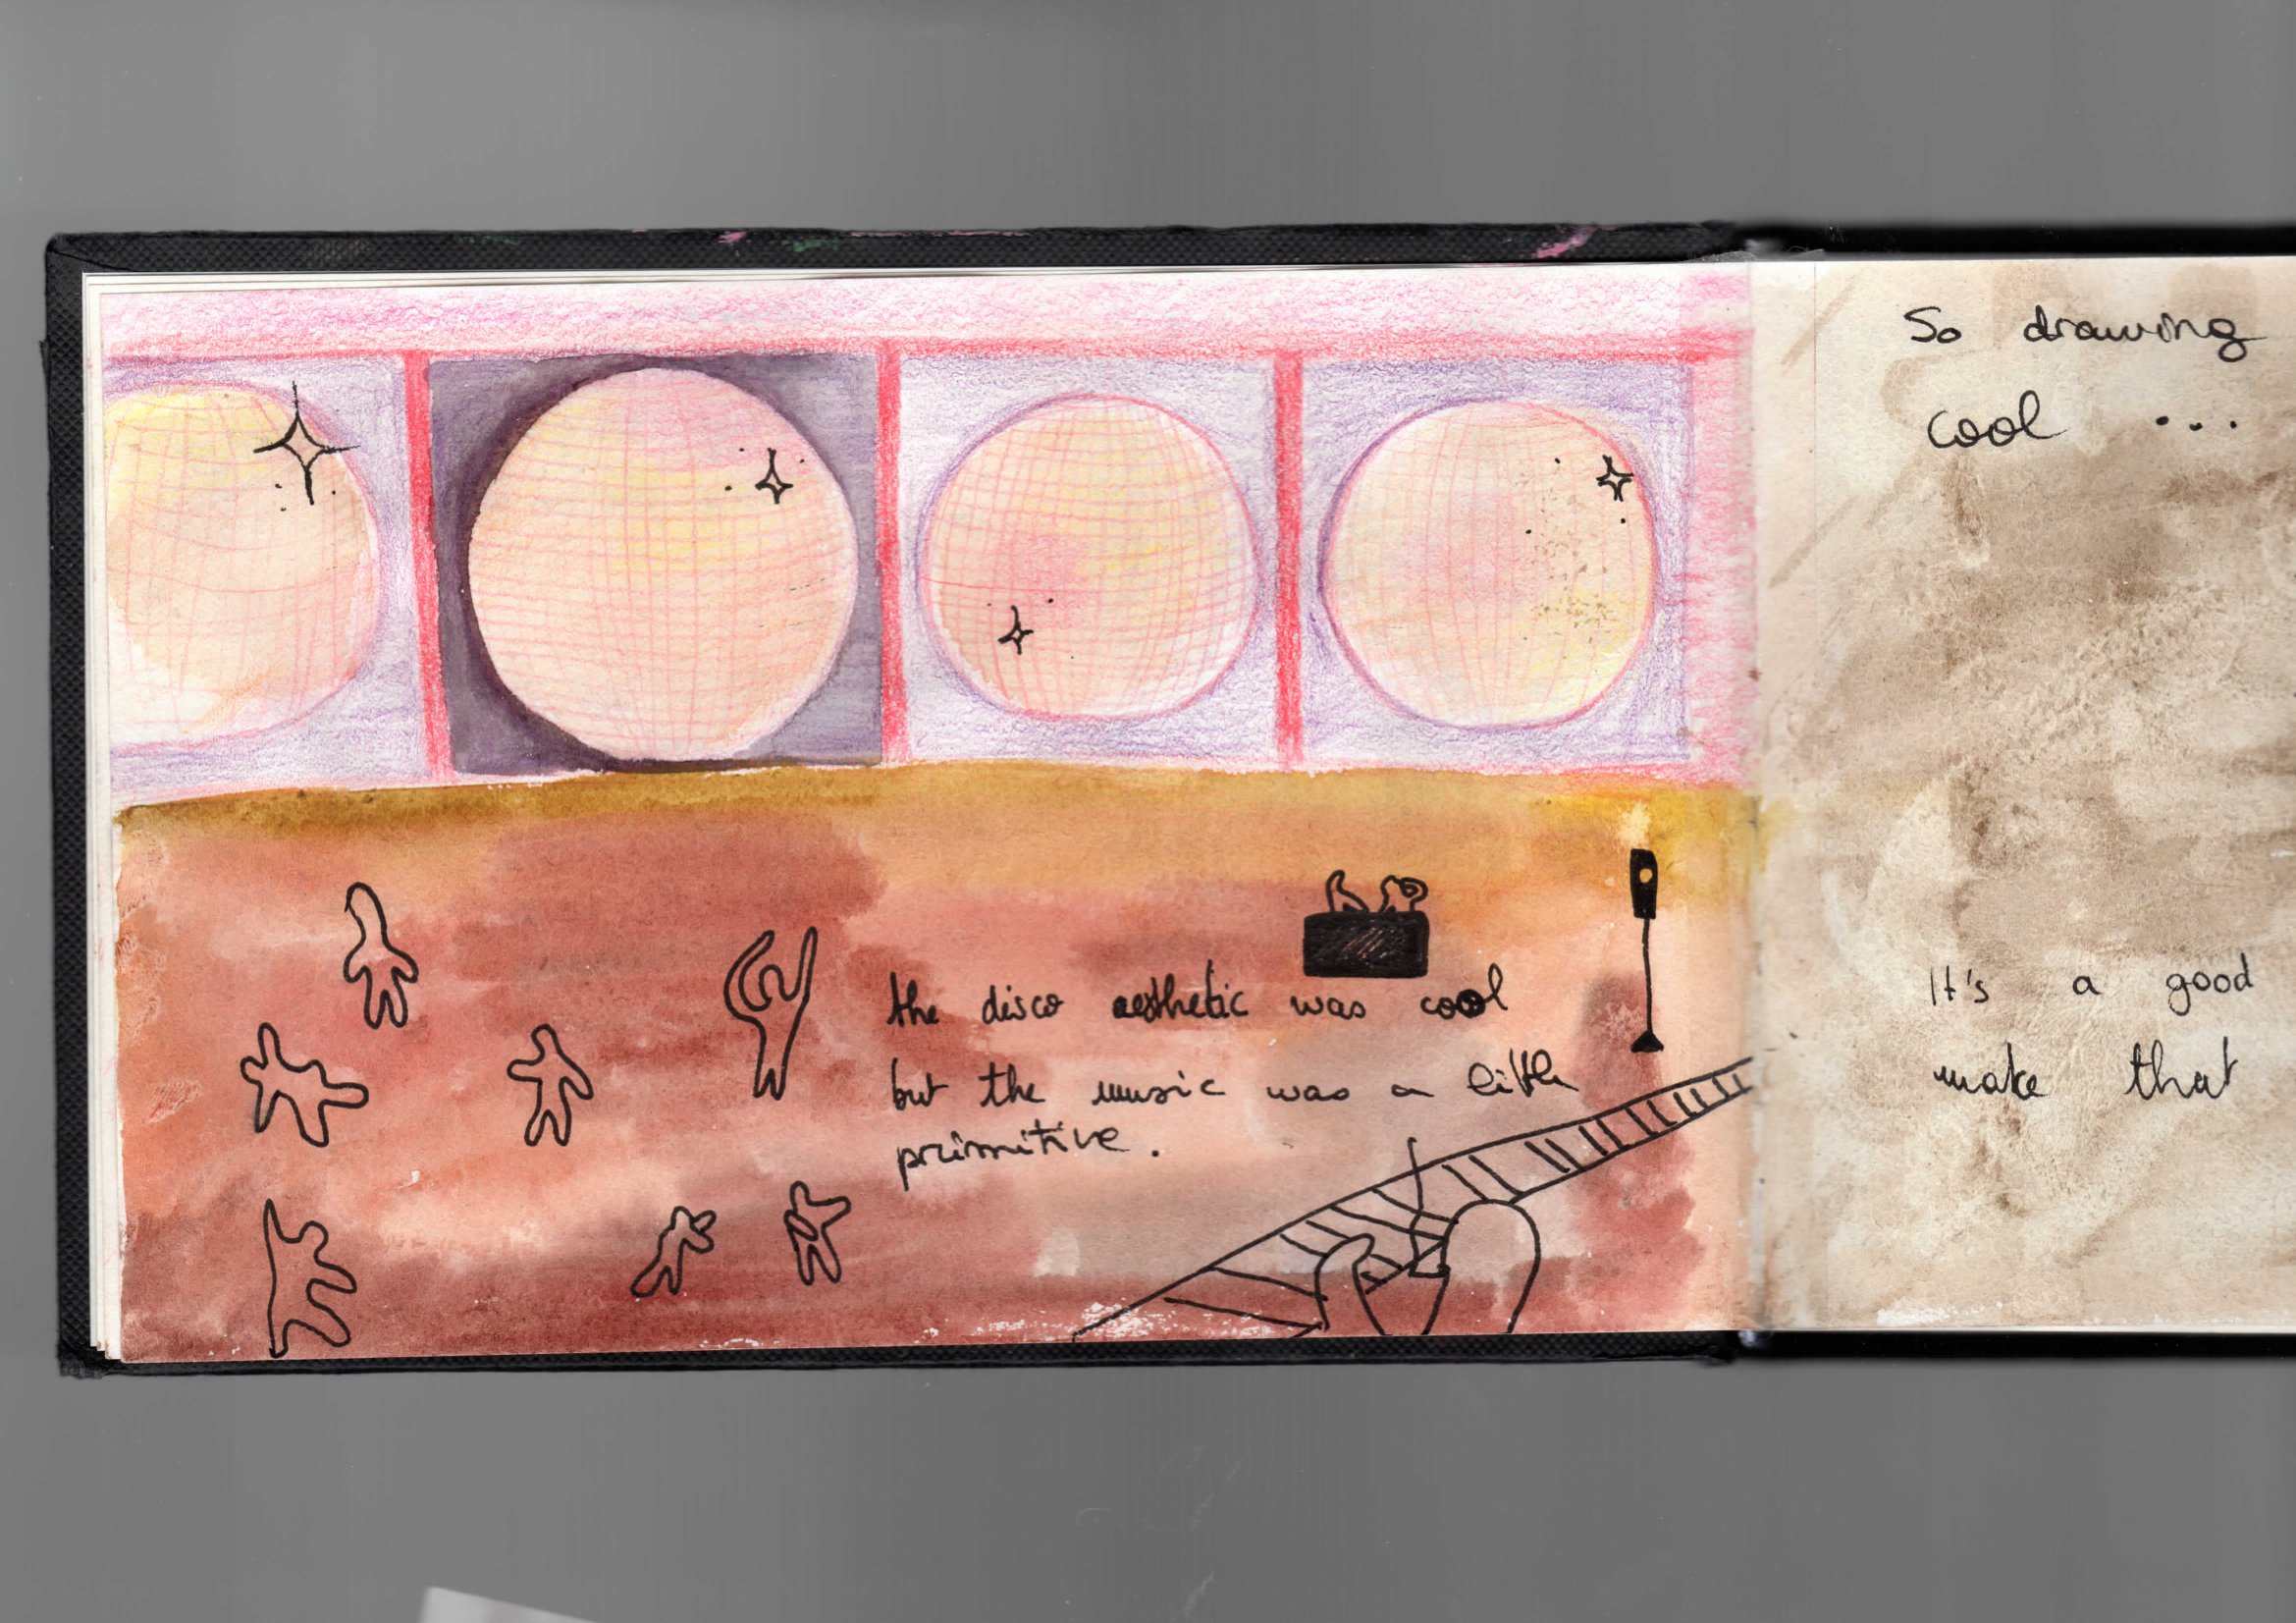 the disco aesthetic was cool
but the music was a little
primitive.
So drawing
cool ...
It's a good
make that